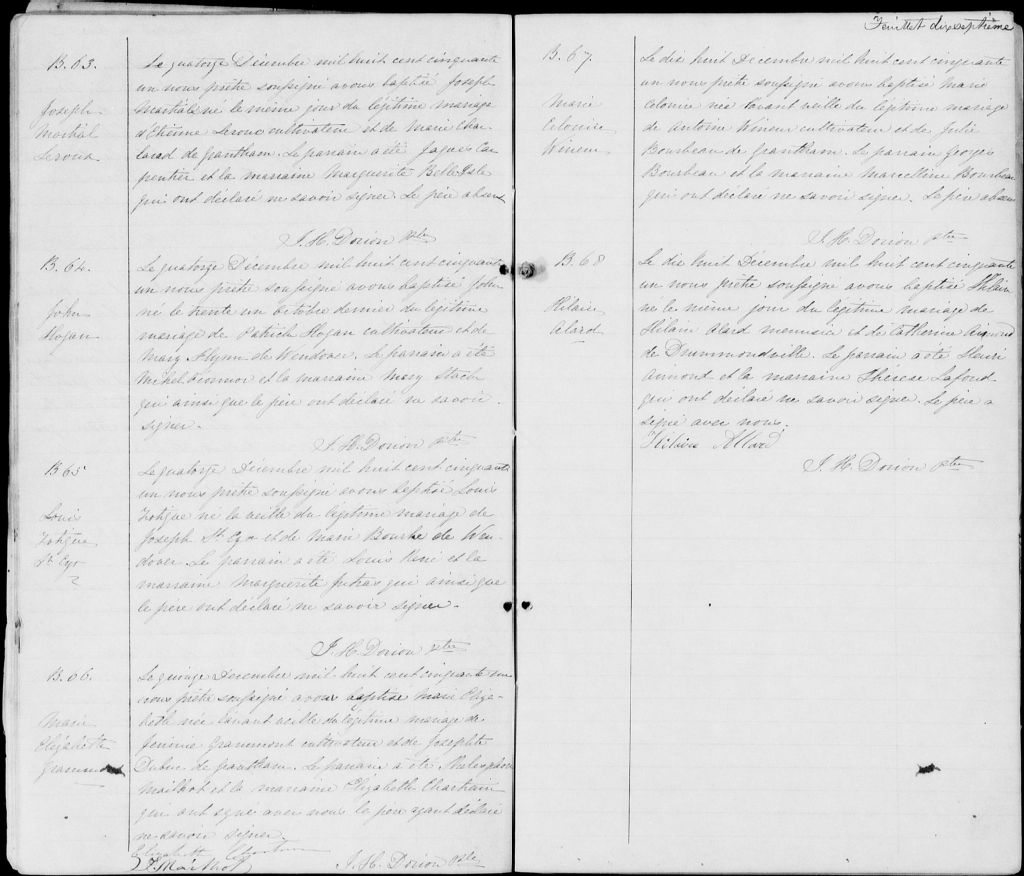 B. 63.
Joseph
Martial
Leroux
Le quatorze Décembre mil huit cent cinquante
un nous prêtre soussigné avons baptisé Joseph
Martial né le même jour du légitime mariage
d'Etienne Leroux cultivateur et de Marie Cha-
de Grantham. Le parrain a été Jaques Car
pentier et la marraine Marguerite Belle Isle
qui ont déclaré ne savoir signer. Le père absent
J. H. Dorion ptre
B. 64.
John
Hogan
Le quatorze Décembre mil huit cent cinquante
un nous prêtre soussigné avons baptisé John
né le trente un Octobre dernier du légitime
mariage de Patrick Hogan cultivateur et de
Mary Flynn de Wendover. Le parrain a été
Michel O'connor et la marraine Mary Stack
qui ainsi que le père ont déclaré ne savoir
signer.
J. H. Dorion ptre
B 65
Louis
Zotique
St. Cyr
Le quatorze Décembre mil huit cent cinquante
un nous prêtre soussigné avons baptisé Louis
Zotique né la veille du légitime mariage de
Joseph St. Cyr et de Marie Bourke de Wen-
dover. Le parrain a été Louis René et la
marraine Marguerite Jutras qui ainsi que
le père ont déclaré ne savoir signer.
J. H. Dorion ptre
B. 66.
Marie
Elizabeth
Le quinze Décembre mil huit cent cinquante un
nous prêtre soussigné avons baptisé Marie Eliza-
beth née l'avant veille du légitime mariage de
Grammont cultivateur et de Josephte
Dubuc de Grantham. Le parrain a été
Mailhot et la marraine Elizabeth Chartrain
qui ont signé avec nous le père ayant déclaré
ne savoir signer.
Elizabeth
Mailhot
J. H. Dorion ptre
Feuillet dix septième
B. 67.
Marie
Celouire
Wineur
Le dix huit Décembre mil huit cent cinquante
un nous prêtre soussigné avons baptisé Marie
Celonire née l'avant veille du légitime mariage
de Antoine Wineur cultivateur et de Julie
Bourbeau de Grantham. Le parrain Georges
Bourbeau et la marraine Marcelline Bourbeau
qui ont déclaré ne savoir signer. Le père absent
J. H. Dorion ptre
B. 68
Hilaire
Alard
Le dix huit Décembre mil huit cent cinquante
un nous prêtre soussigné avons baptisé Hilaire
né le même jour du légitime mariage de
Hilaire Alard menuisier et de Catherine
de Drummondville. Le parrain a été Henri
Aimond et la marraine Thérese Lafond
qui ont déclaré ne savoir signer. Le père a
signé avec nous.
Hilaire Allard
J. H. Dorion ptre